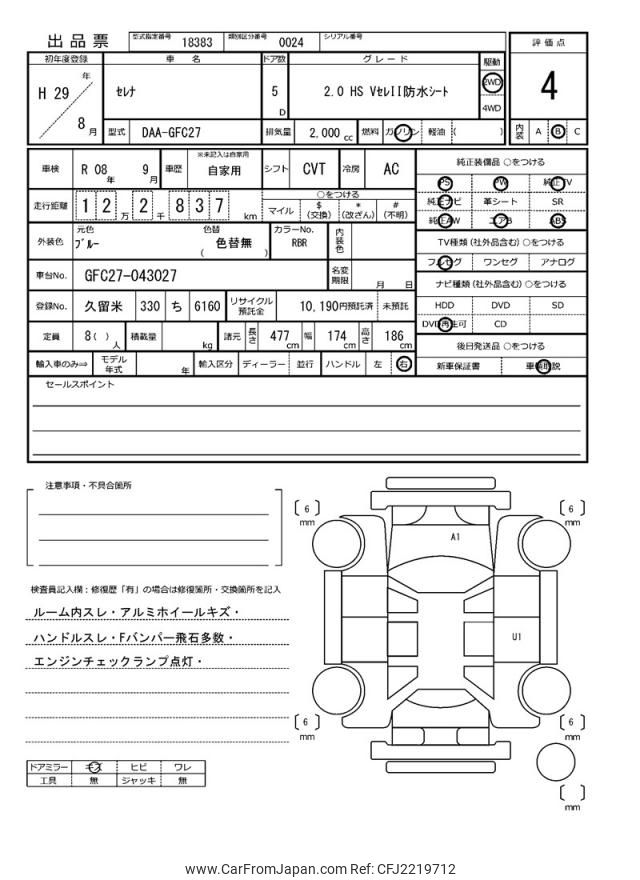 出品票 型式指定番号 18383 類別区分番号 0024 シリアル番号
評価点
4
内装 A B C
初年度登録 車名 ドア数 グレード 駆動
H 29 年 8 月
セレナ 5 D 2.0 HS VセレII防水シート 2WD 4WD
型式 DAA-GFC27 排気量 2,000 cc 燃料 ガソリン 軽油 ( )
車検 R 08 年 9 月 車歴 ※未記入は自家用 自家用 シフト CVT 冷房 AC
走行距離 1 2 万 2 千 8 3 7 km ○をつける
マイル $ (交換) * (改ざん) # (不明)
外装色 元色 ブルー 色替 ( 色替無 ) カラーNo. RBR 内装色
車台No. GFC27-043027 名変期限 月 日
登録No. 久留米 330 ち 6160 リサイクル預託金 10,190円預託済 未預託
定員 8( ) 人 積載量 kg 諸元 長さ 477 cm 幅 174 cm 高さ 186 cm
輸入車のみ⇒ モデル年式 年 輸入区分 ディーラー 並行 ハンドル 左 右
純正装備品 ○をつける
PS PW 純正TV
純正ナビ 革シート SR
純正AW エアB ABS
TV種類 (社外品含む) ○をつける
フルセグ ワンセグ アナログ
ナビ種類 (社外品含む) ○をつける
HDD DVD SD
DVD再生可 CD
後日発送品 ○をつける
新車保証書 車輌取説
セールスポイント
注意事項・不具合箇所
検査員記入欄：修復歴「有」の場合は修復箇所・交換箇所を記入
ルーム内スレ・アルミホイールキズ・
ハンドルスレ・Fバンパー飛石多数・
エンジンチェックランプ点灯・
ドアミラー キズ ヒビ ワレ
工具 無 ジャッキ 無
( 6 ) mm
( 6 ) mm
A1
U1
( 6 ) mm
( 6 ) mm
( ) mm
www.CarFromJapan.com Ref: CFJ2219712